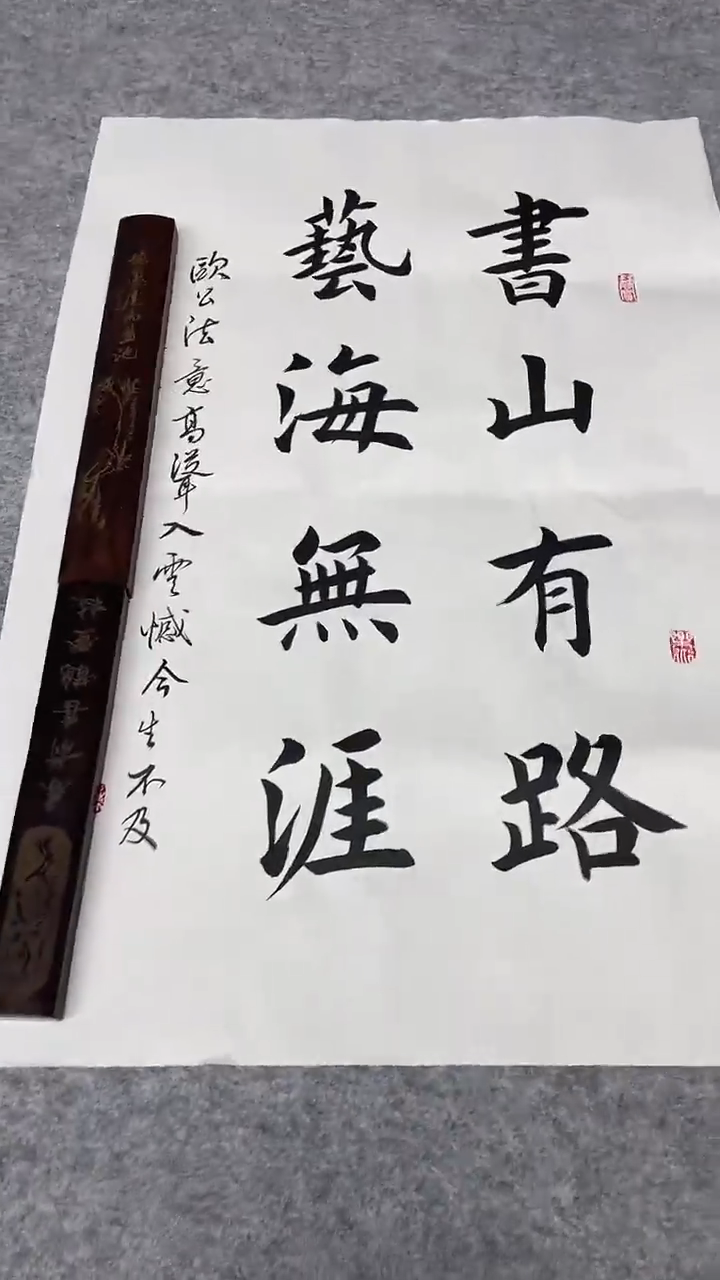 書山有路
藝海無涯
歐公法意高聳入雲憾今生不及